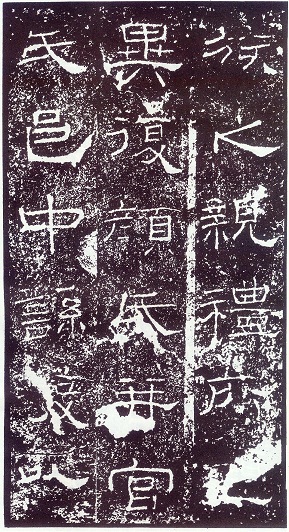 族之親禮所宜
異復顏氏并官
氏邑中繇發以